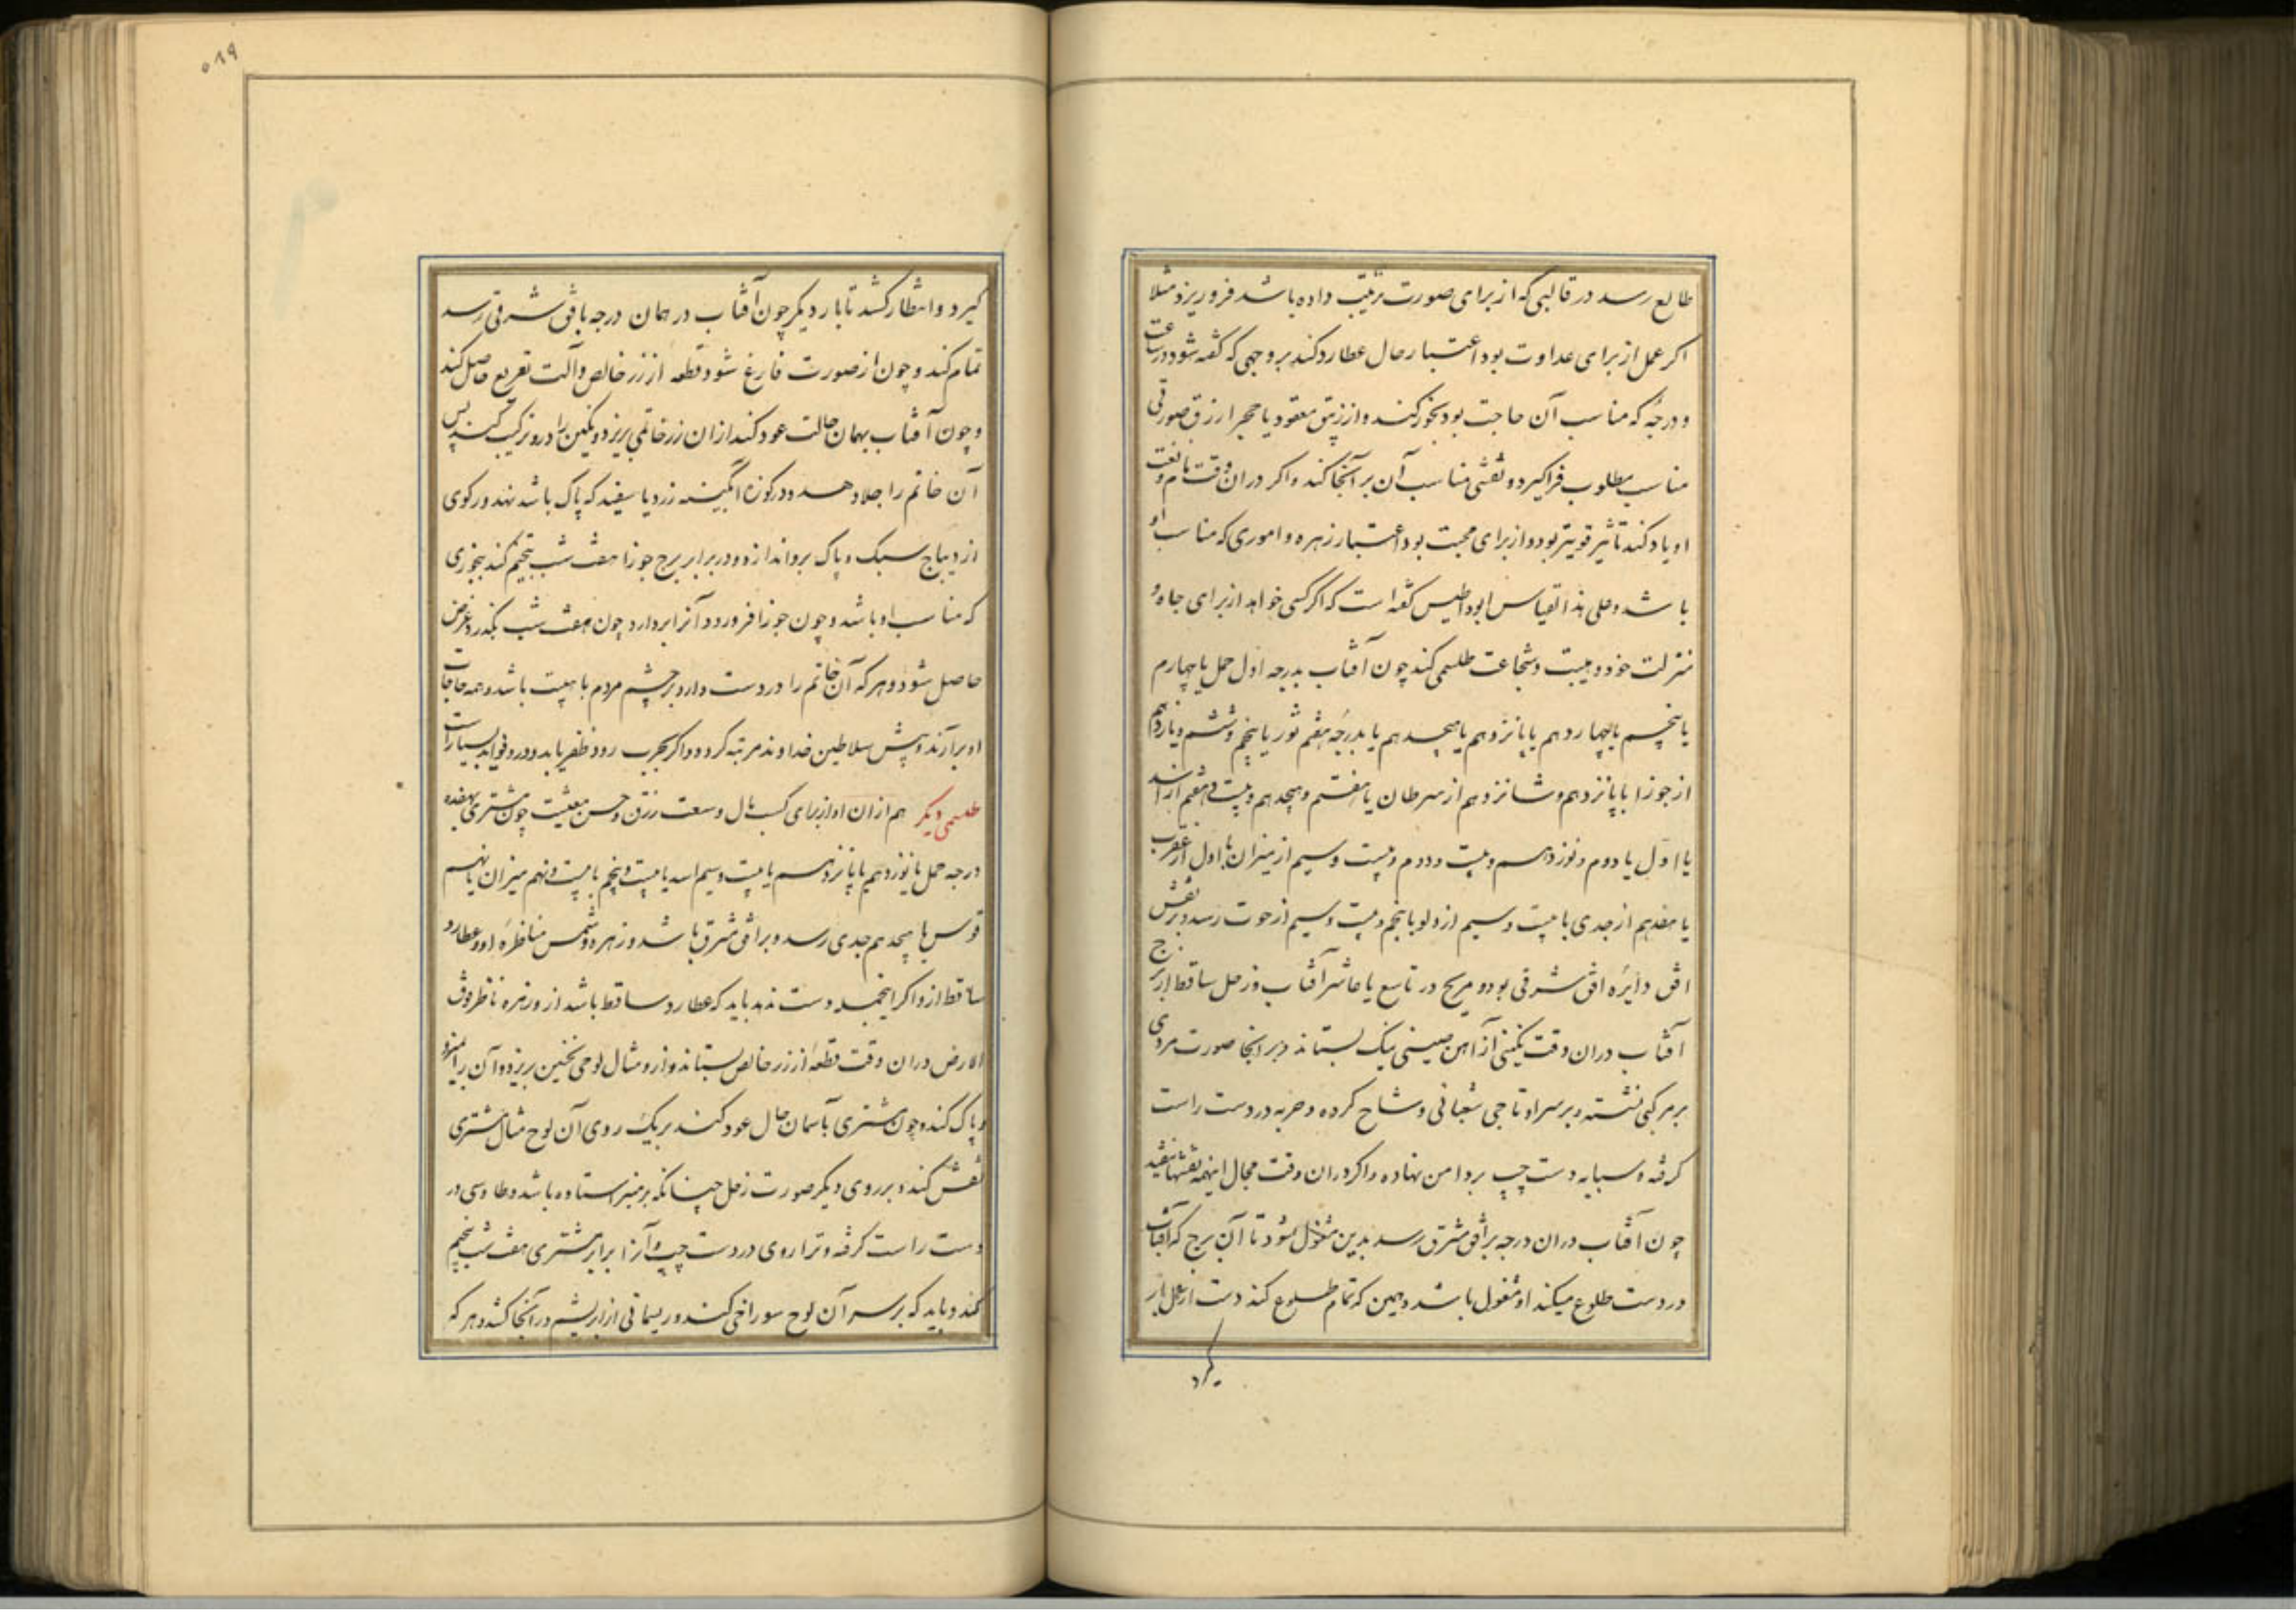 طالع رسد در قالبی که از برای صورت ترتیب داده باشد فرو ریزد مثلا
اکر عمل از برای عداوت بود اعتبار حال عطارد کند بر وجهی که کفته شود در ساعت
و درجه که مناسب آن حاجت بود بخور کند و از زیبق معقود یا حجر ازرق صورتی
مناسب مطلوب فرا کیرد و نقشی مناسب آن بر آنجا کند و اکر در ان وقت نام و نعت
او یاد کند تاثیر قویتر بود و از برای محبت بود اعتبار زهره و اموری که مناسب او
باشد و علی هذا القیاس کفته است که اکر کسی خواهد از برای جاه و
منزلت خود و هیبت و شجاعت طلسمی کند چون آفتاب بدرجه اول حمل یا چهارم
یا پنجم یا چهاردهم یا پانزدهم یا هیجدهم یا بدرجه هفتم ثور یا پنجم و ششم و یازدهم
از جوزا یا پانزدهم و شانزدهم از سرطان یا هفتم و هیجدهم و بیست و هفتم از اسد
یا اول یا دوم و نوزدهم و بیست و دوم و بیست و سیم از میزان یا اول از عقرب
یا هفدهم از جدی یا بیست و سیم از دلو یا پنجم و بیست و سیم از حوت رسد و بر نفس
افق دایره افق شرقی بود و مریخ در تاسع یا عاشر آفتاب و زحل ساقط از برج
آفتاب در ان وقت نکینی از آهن صینی نیک بستاند و بر انجا صورت مردی
بر مرکبی نشسته و بر سر او تاجی ثعبانی وشاح کرده و حربه در دست راست
کرفته و سبابه دست چپ بر دامن نهاده و اکر در ان وقت مجال اینهمه نقشها نیفتد
چون آفتاب در ان درجه بر افق مشرق رسد بدین مشغول شود تا آن برج که آفتاب
دروست طلوع میکند او مشغول باشد و همین که تمام طلوع کند دست از عمل باز
کیرد
۵۸۹
کیرد و انتظار کشد تا بار دیکر چون آفتاب در همان درجه بافق شرقی رسد
تمام کند و چون از صورت فارغ شود قطعه از زر خالص و آلت تفریع حاصل کند
و چون آفتاب بهمان حالت عود کند از ان زر خاتمی بریزد و نکین را درو ترکیب کند پس
آن خاتم را جلا دهد و در کوزه آبکینه زرد یا سفید که پاک باشد نهد و رکوی
از دیباج سبک و پاک برو اندازد و در برابر برج جوزا هفت شب تنجیم کند ببخوری
که مناسب او باشد و چون جوزا فرو رود آنرا بردارد چون هفت شب بکذرد غرض
حاصل شود و هر که آن خاتم را در دست دارد بر چشم مردم با هیبت باشد و همه حاجات
او برآرند و پیش سلاطین خداوند مرتبه کردد و اکر بحرب رود ظفر یابد و درو فواید بسیار است
طلسمی دیکر هم از ان او از برای کسب مال و سعت رزق و حسن معیشت چون مشتری بهفده
درجه حمل یا نوزدهم یا پانزدهم یا بیست و سیم اسد یا بیست و پنجم یا بیست و نهم میزان یا نهم
قوس یا هیجدهم جدی رسد و بر افق مشرق باشد و زهره و شمس مناظره او و عطارد
ساقط ازو اکر اینجمله دست ندهد باید که عطارد ساقط باشد ازو و زهره ناظر فوق
الارض در ان وقت قطعه از زر خالص بستاند و ازو مثال لوحی بریزد و آن را
و پاک کند و چون مشتری بآسمان حال عود کند بر یک روی آن لوح مثال مشتری
نقش کند و بر روی دیکر صورت زحل چنانکه بر منبر استاده باشد و طاوسی در
دست راست کرفته و ترازوی در دست چپ و آنرا برابر مشتری هفت شب تنجیم
کند و باید که بر سر آن لوح سوراخی کند و ریسمانی از ابریشم در آنجا کشد و هر که